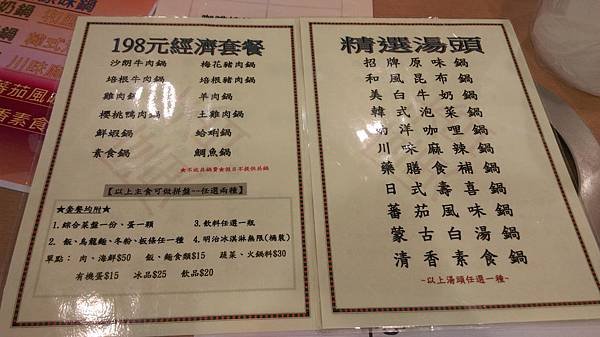 198元經濟套餐
沙朗牛肉鍋 梅花豬肉鍋
培根牛肉鍋 培根豬肉鍋
雞肉鍋 羊肉鍋
櫻桃鴨肉鍋 土雞肉鍋
鮮蝦鍋 蛤蜊鍋
素食鍋 鯛魚鍋
【以上主食可做拼盤--任選兩種】
★套餐均附★
1.綜合菜盤一份、蛋一顆 3.飲料任選一瓶
2. 飯、烏龍麵、冬粉、板條任一種 4.明治冰淇淋無限(桶裝)
單點： 肉、海鮮$50 飯、麵食類$15 蔬菜、火鍋料$30
有機蛋$15 冰品$25 飲品$20
精選湯頭
招牌原味鍋
和風昆布鍋
美白牛奶鍋
韓式泡菜鍋
南洋咖哩鍋
川味麻辣鍋
藥膳食補鍋
日式壽喜鍋
蕃茄風味鍋
蒙古白湯鍋
清香素食鍋
~以上湯頭任選一種~